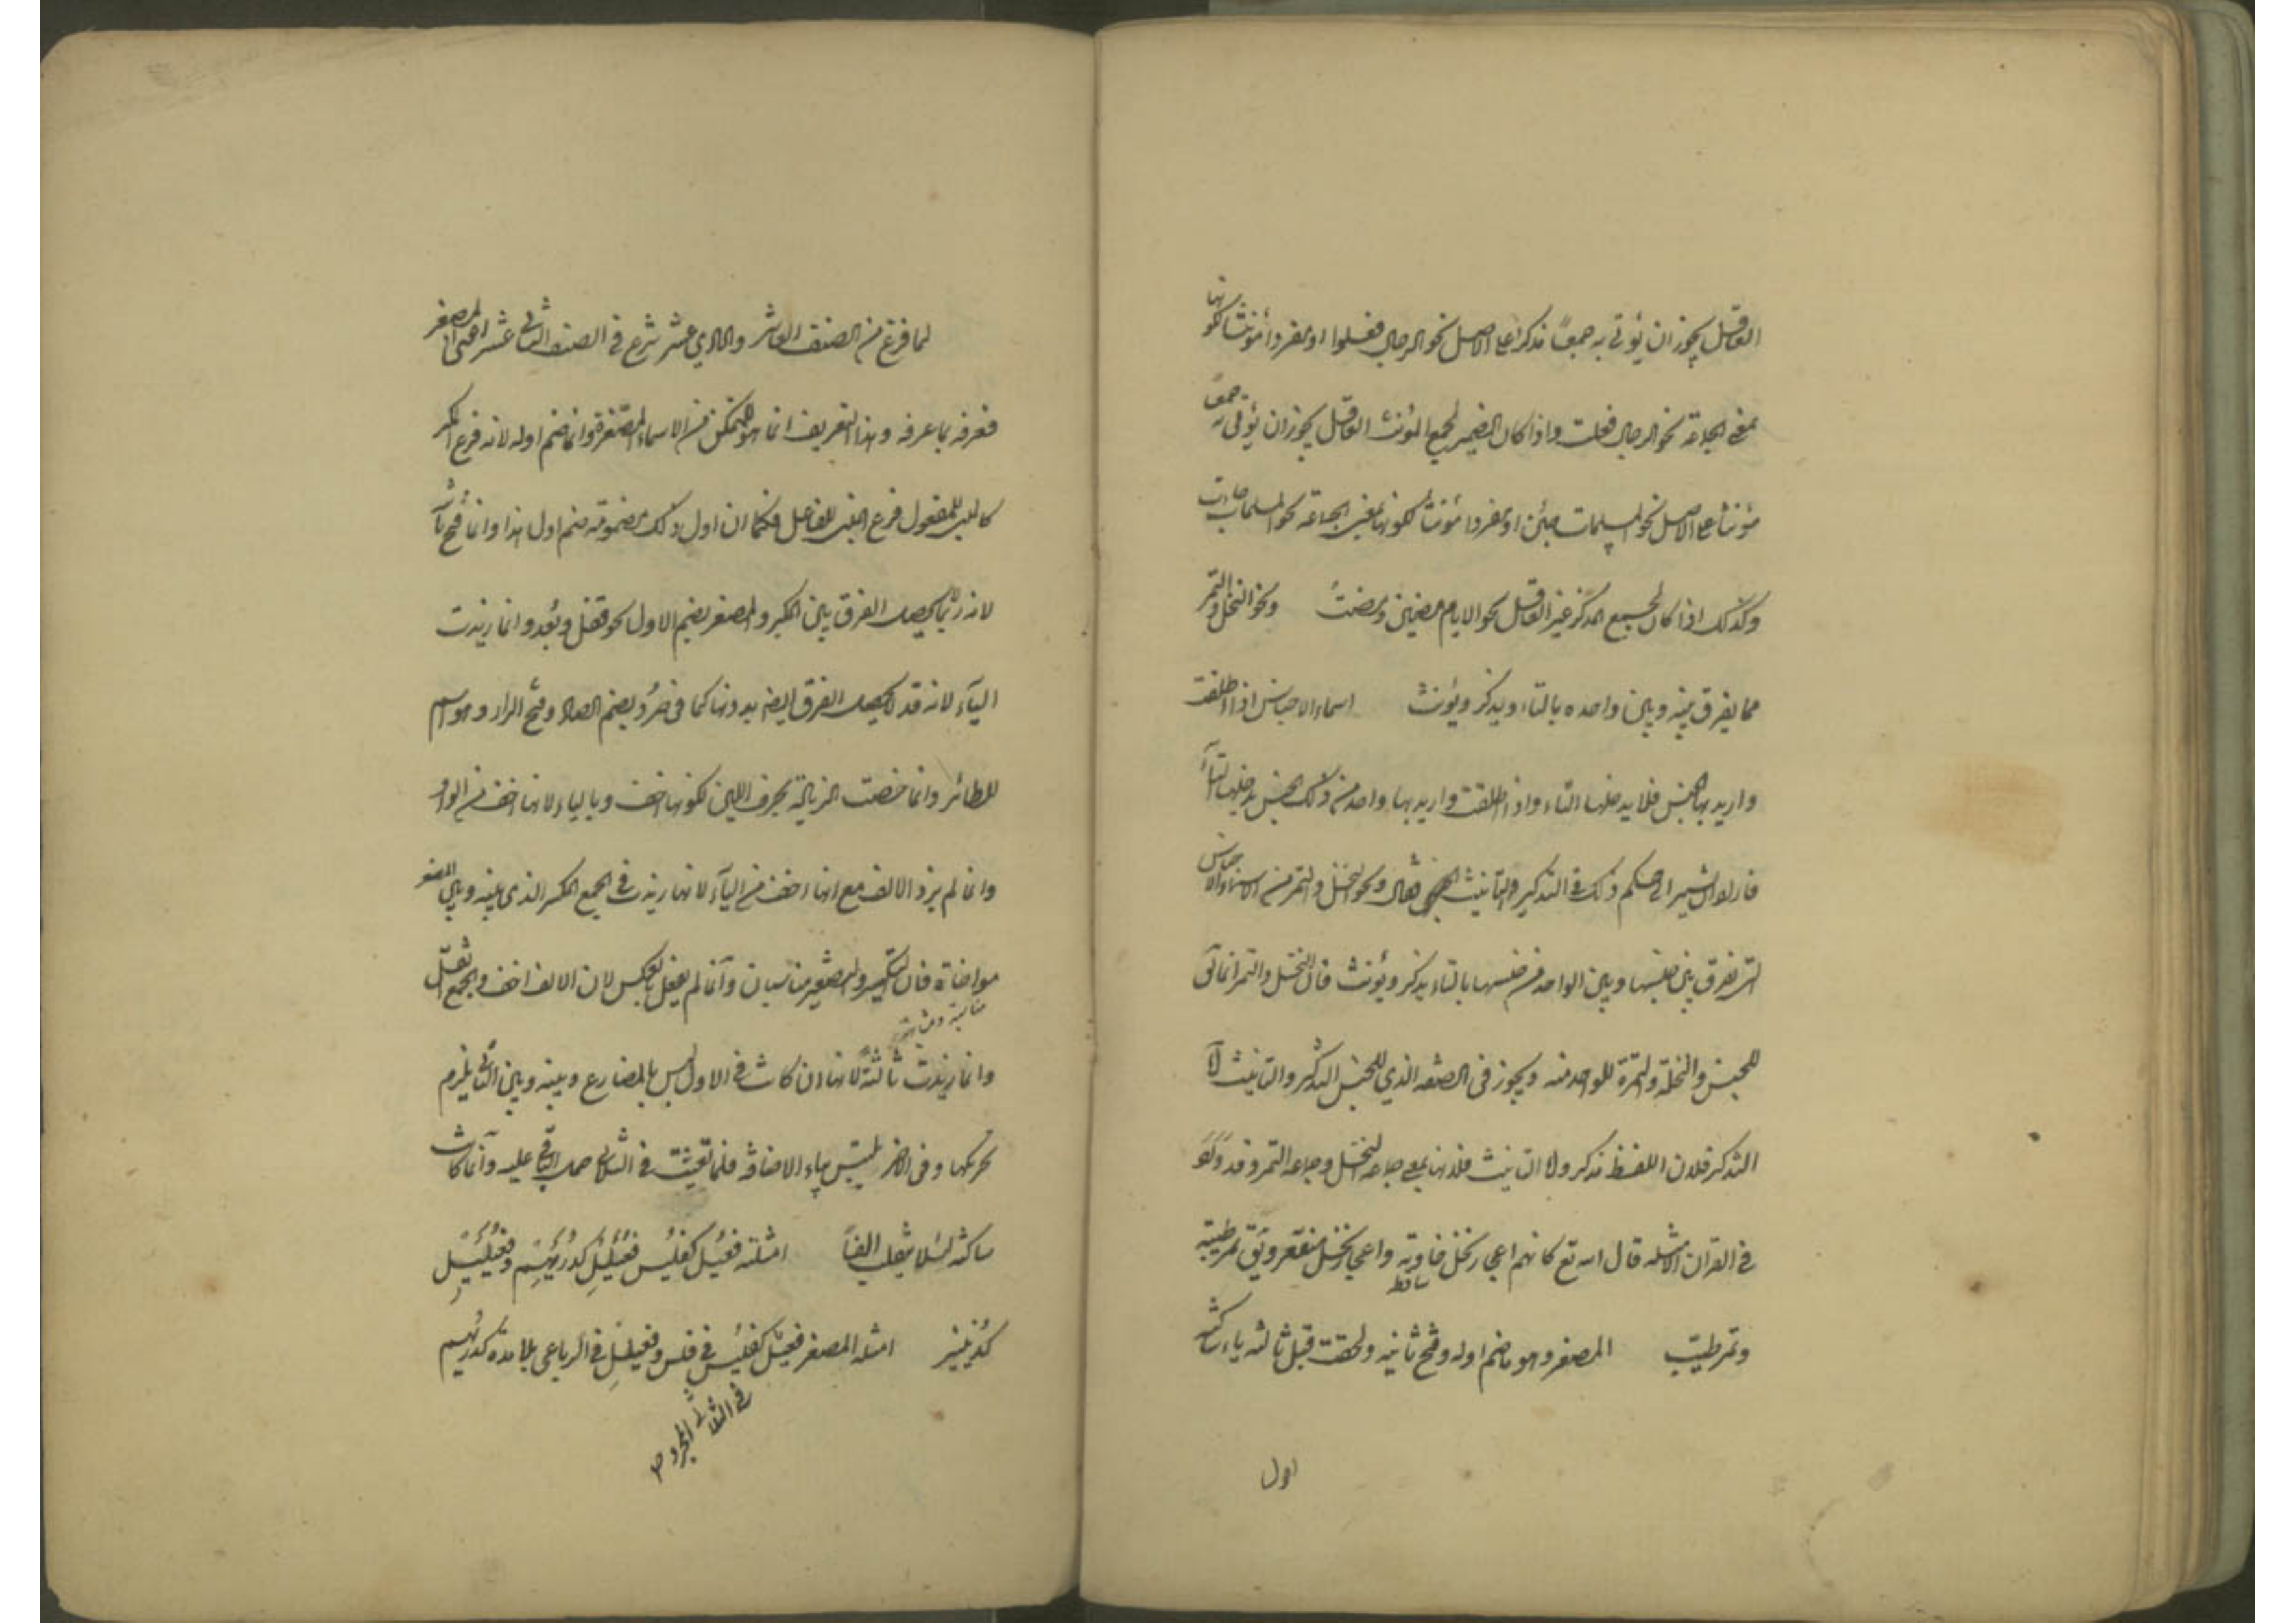 العاقل يجوز ان يؤتى به جمعا مذكرا على الاصل نحو الرجال فعلوا او مفردا مؤنثا لكونها
بمعنى الجماعة نحو الرجال فعلت واذا كان الضمير لجمع المؤنث العاقل يجوز ان يؤتى به جمعا
مؤنثا على الاصل نحو المسلمات جئن او مفردا مؤنثا لكونها بمعنى الجماعة نحو المسلمات جاءت
وكذلك اذا كان لجمع المذكر غير العاقل نحو الايام مضين ومضت ونحو النخل والتمر
مما يفرق بينه وبين واحده بالتاء ويذكر ويؤنث اسماء الاجناس اذا اطلقت
واريد بها الجنس فلا يدخلها التاء واذا اطلقت واريد بها واحد من ذلك الجنس يدخلها التاء
فاراد ان يشير الى حكم ذلك في التذكير والتأنيث فقال ونحو النخل والتمر من الاسماء الاجناس
التي تفرق بين جنسها وبين الواحد من جنسها بالتاء يذكر ويؤنث فان النخل والتمر انما تى
للجنس والنخلة والتمرة للواحد منه ويجوز في الصفة الذي للجنس التذكير والتانيث اما
التذكير فلان اللفظ مذكر واما التانيث فلانها بمعنى جماعة النخل وجماعة التمر وقد وقع
في القران الامثلة قال الله تع كانهم اعجاز نخل خاوية واعجاز نخل منقعر ويق تمر طيبة
ساقط
وتمر طيب المصغر وهو ما ضم اوله وفتح ثانيه ولحقت قبل ثالثه ياء ساكنة
اول
لما فرغ من الصنف العاشر والحادي عشر شرع في الصنف الثاني عشر اعني المصغر
فعرفه بما عرفه وهذا التعريف انما هو للمتمكن من الاسماء المصغرة وانما ضم اوله لانه فرع المكبر
كالمبني للمفعول فرع المبني للفاعل فكما ان اول ذلك مضموم ضم اول هذا وانما فتح ثانيه
لانه ربما لم يحصل الفرق بين المكبر والمصغر بضم الاول نحو قفل وبعد وانما زيدت
الياء لانه قد لا يحصل الفرق ايضا بدونها كما في صرد بضم الصاد وفتح الراء وهو اسم
للطائر وانما خصت الزيادة بحرف اللين لكونها اخف وبالياء لانها اخف من الواو
وانما لم يزد الالف مع انها اخف من الياء لانها زيدت في الجمع المكسر الذي بينه وبين المصغر
مواخاة فان التكسير والتصغير متناسبان وانما لم يفعل بالعكس لان الالف اخف والجمع اثقل
مناسبة ومشابهة
وانما زيدت ثالثة لانها ان كانت في الاول لبس بالمضارع وبينه وبين الثاني يلزم
تحريكها وفي الاخر يلتبس بياء الاضافة فلما تعينت في الثلاثي حمل الباقي عليه وانما كانت
ساكنة لئلا ينقلب الفا امثلته فعيل كفليس فعيعل كدريهم وفعيعيل
كدنينير امثلة المصغر فعيل كفليس في فلس وفعيعل في الرباعي بلا مدة كدريهم
في الثلاثي المجرد صح